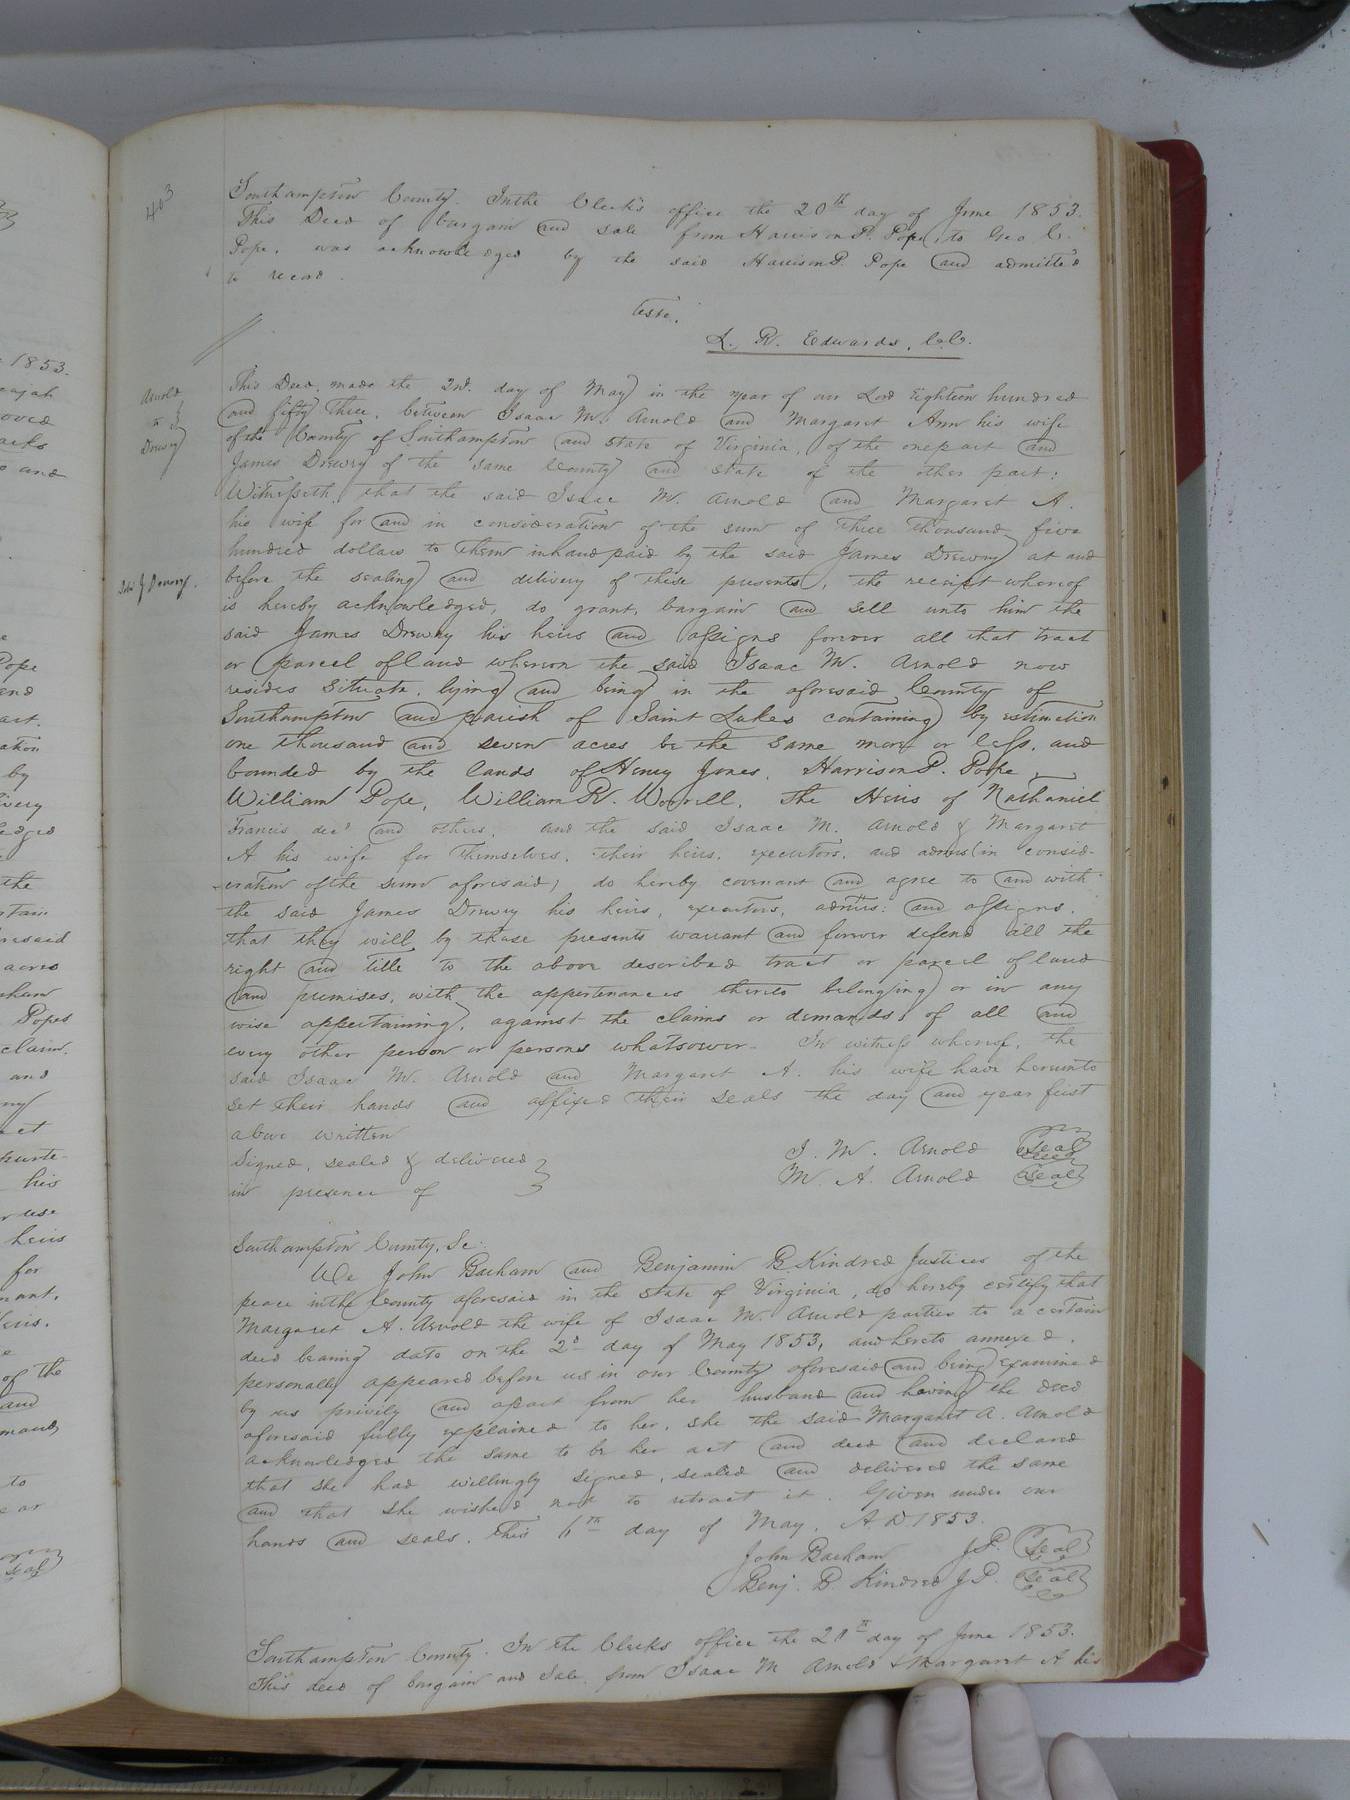 403
Southampton County. In the Clerk's office the 20th day of June 1853.
This Deed of bargain and sale from Harrison P. Pope, to Geo C.
Pope, was acknowledged by the said Harrison P. Pope and admitted
to record.
Teste.
L. R. Edwards, C.C.
Arnold
to
Drewry
This Deed, made the 2nd. day of May in the year of our Lord Eighteen hundred
and fifty three, between Isaac M. Arnold and Margaret Ann his wife
of the County of Southampton and State of Virginia, of the one part and
James Drewry of the same County and State of the other part:
Witnesseth, that the said Isaac M. Arnold and Margaret A.
his wife for and in consideration of the sum of three thousand five
hundred dollars to them in hand paid by the said James Drewry at and
before the sealing and delivery of these presents, the receipt whereof
J Drewry.
is hereby acknowledged, do grant, bargain and sell unto him the
said James Drewry his heirs and assigns forever all that tract
or parcel of land whereon the said Isaac M. Arnold now
resides situate, lying and being in the aforesaid County of
Southampton and parish of Saint Lukes containing by estimation
one thousand and seven acres be the same more or less, and
bounded by the lands of Henry Jones, Harrison P. Pope,
William Pope, William R. Worrell, the Heirs of Nathaniel
Francis decd and others, and the said Isaac M. Arnold & Margaret
A his wife for themselves, their heirs, executors, and admrs (in consid-
-eration of the sum aforesaid) do hereby covenant and agree to and with
the said James Drewry his heirs, executors, admrs: and assigns,
that they will by these presents warrant and forever defend all the
right and title to the above described tract or parcel of land
and premises, with the appertenances thereto belonging or in any
wise appertaining, against the claims or demands of all and
every other person or persons whatsoever. In witness whereof, the
said Isaac M. Arnold and Margaret A. his wife have hereunto
set their hands and affixed their seals the day and year first
above written
Signed, sealed & delivered
in presence of
I. M. Arnold Seal
M. A. Arnold Seal
Southampton County, Sc:
We John Barham and Benjamin B Kindred Justices of the
peace in the County aforesaid in the state of Virginia, do hereby certify that
Margaret A. Arnold the wife of Isaac M. Arnold parties to a certain
deed bearing date on the 2d day of May 1853, and hereto annexed,
personally appeared before us in our County aforesaid and being examined
by us privily and apart from her husband and having the deed
aforesaid fully explained to her, she the said Margaret A. Arnold
acknowledged the same to be her act and deed and declared
that she had willingly signed, sealed and delivered the same
and that she wished not to retract it. Given under our
hands and seals, this 6th day of May, A D 1853.
John Barham J.P. Seal
Benj. B. Kindred J P. Seal
Southampton County. In the Clerks office the 20th day of June 1853.
This deed of bargain and Sale, from Isaac M Arnold & Margaret A his